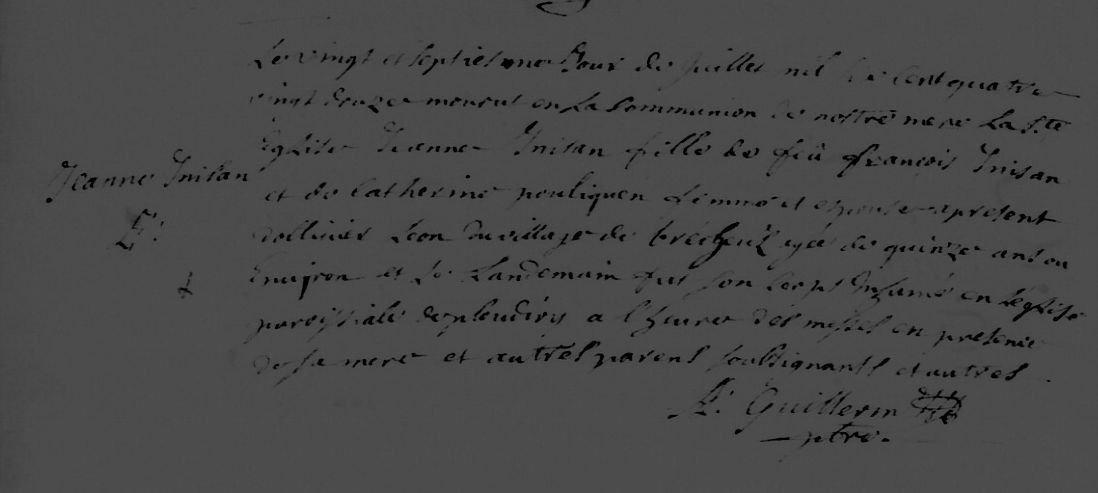 Le vingt et septiesme Jour de Juillet mil six cent quatre
vingt douze mourut en La Communion de nostre mere La Ste
Eglise Jeanne Inisan fille de feu francois Inisan
Jeanne Inisan
et de Catherine pouliquen femme et espouse apresent
dollivier Leon du village de agée de quinze ans ou
Environ et Le Landemain fut son corps Inhumé en l'eglise
paroissiale de pleudiry a l'heure des messes en presence
de sa mere et autres parens soubsignants et autres.
Guillerm
ptre.